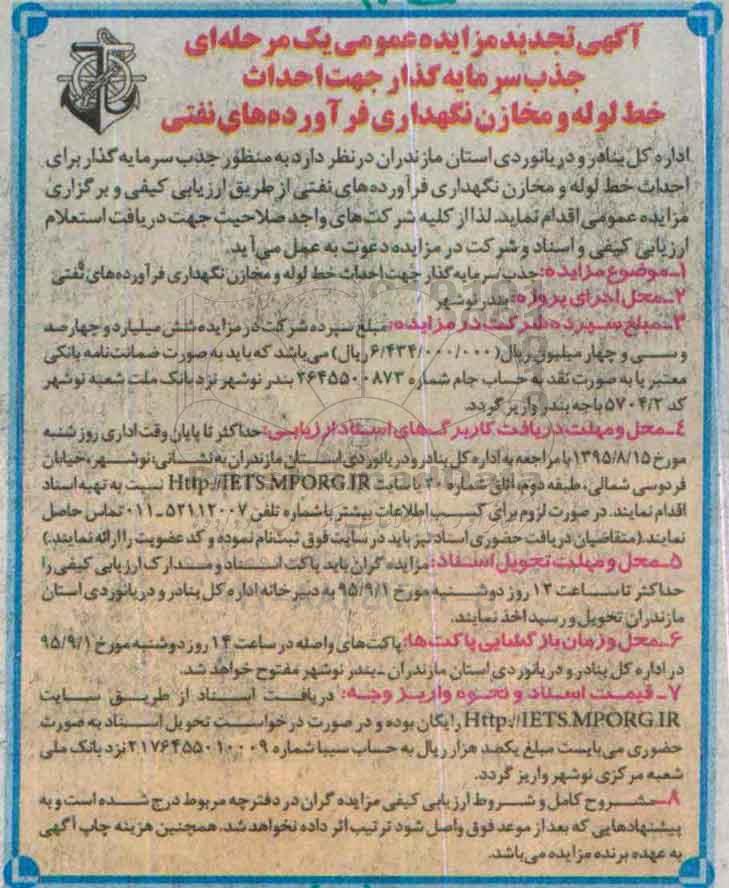 آگهی تجدید مزایده عمومی یک مرحله‌ای
جذب سرمایه گذار جهت احداث
خط لوله و مخازن نگهداری فرآورده‌های نفتی
اداره کل بنادر و دریانوردی استان مازندران در نظر دارد به منظور جذب سرمایه گذار برای
احداث خط لوله و مخازن نگهداری فرآورده‌های نفتی از طریق ارزیابی کیفی و برگزاری
مزایده عمومی اقدام نماید. لذا از کلیه شرکت‌های واجد صلاحیت جهت دریافت استعلام
ارزیابی کیفی و اسناد و شرکت در مزایده دعوت به عمل می‌آید.
۱ـ موضوع مزایده: جذب سرمایه گذار جهت احداث خط لوله و مخازن نگهداری فرآورده‌های نفتی
۲ـ محل اجرای پروژه: بندر نوشهر
۳ـ مبلغ سپرده شرکت در مزایده: مبلغ سپرده شرکت در مزایده شش میلیارد و چهارصد
و سی و چهار میلیون ریال (۶/۴۳۴/۰۰۰/۰۰۰ ریال) می‌باشد که باید به صورت ضمانت‌نامه بانکی
معتبر یا به صورت نقد به حساب جام شماره ۲۶۴۵۵۰۰۸۷۳ بندر نوشهر نزد بانک ملت شعبه نوشهر
کد ۵۷۰۴/۲ باجه بندر واریز گردد.
۴ـ محل و مهلت دریافت کاربرگ‌های اسناد ارزیابی: حداکثر تا پایان وقت اداری روز شنبه
مورخ ۱۳۹۵/۸/۱۵ با مراجعه به اداره کل بنادر و دریانوردی استان مازندران به نشانی: نوشهر، خیابان
فردوسی شمالی، طبقه دوم، اتاق شماره ۳۰ یا سایت Http://IETS.MPORG.IR نسبت به تهیه اسناد
اقدام نمایند. در صورت لزوم برای کسب اطلاعات بیشتر با شماره تلفن ۵۲۱۱۲۰۰۷ ـ ۰۱۱ تماس حاصل
نمایند. (متقاضیان دریافت حضوری اسناد نیز باید در سایت فوق ثبت‌نام نموده و کد عضویت را ارائه نمایند.)
۵ـ محل و مهلت تحویل اسناد: مزایده گران باید پاکت اسناد و مدارک ارزیابی کیفی را
حداکثر تا ساعت ۱۲ روز دوشنبه مورخ ۹۵/۹/۱ به دبیرخانه اداره کل بنادر و دریانوردی استان
مازندران تحویل و رسید اخذ نمایند.
۶ـ محل و زمان بازگشایی پاکت‌ها: پاکت‌های واصله در ساعت ۱۴ روز دوشنبه مورخ ۹۵/۹/۱
در اداره کل بنادر و دریانوردی استان مازندران ـ بندر نوشهر مفتوح خواهد شد.
۷ـ قیمت اسناد و نحوه واریز وجه: دریافت اسناد از طریق سایت
Http://IETS.MPORG.IR رایگان بوده و در صورت درخواست تحویل اسناد به صورت
حضوری می‌بایست مبلغ یکصد هزار ریال به حساب سیبا شماره ۲۱۷۶۴۵۵۰۱۰۰۰۹ نزد بانک ملی
شعبه مرکزی نوشهر واریز گردد.
۸ـ مشروح کامل و شروط ارزیابی کیفی مزایده گران در دفترچه مربوط درج شده است و به
پیشنهادهایی که بعد از موعد فوق واصل شود ترتیب اثر داده نخواهد شد. همچنین هزینه چاپ آگهی
به عهده برنده مزایده می‌باشد.